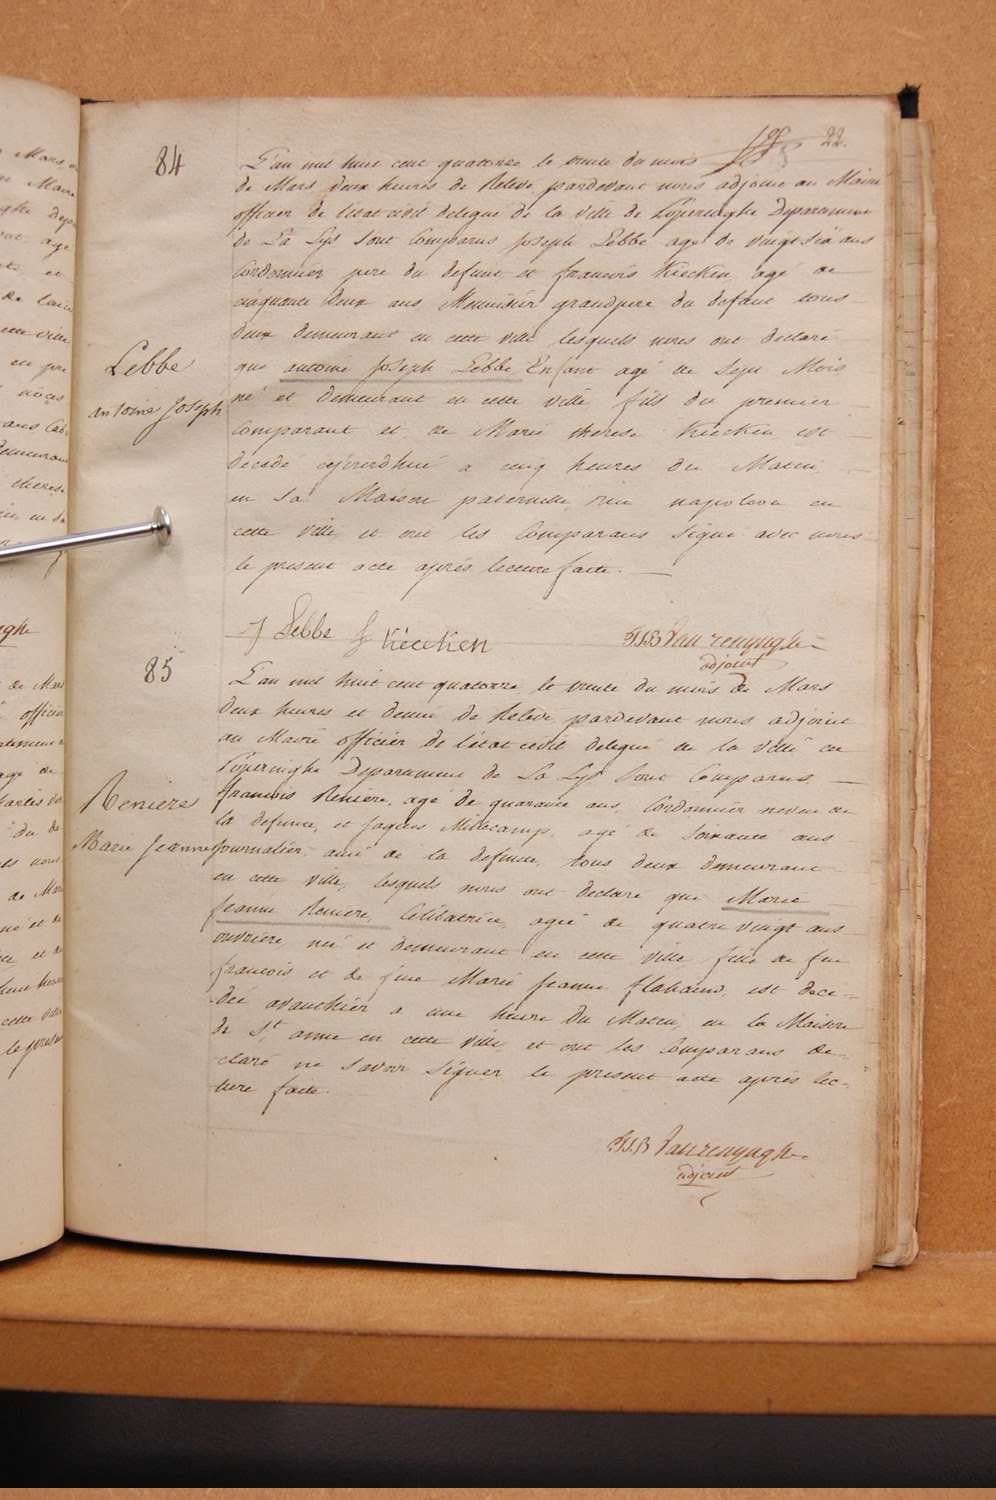 22.
84
L'an mil huit cent quatorze le trente du mois
de Mars deux heures de Relevé pardevant nous adjoint au Maire
officier de l'état civil delegué de la ville de Poperinghe Departement
de La Lys sont Comparus Joseph Lebbe agé de vingt six ans
Cordonnier pere du defunt et francois Kiecken agé de
cinquante deux ans Meunisier grandpere du defunt tous
deux demeurant en cette ville lesquels nous ont declaré
que antoine Joseph Lebbe Enfant agé de Sept Mois
né et demeurant en cette ville fils du premier
Comparant et de Marie therese Kiecken est
decedé cejourdhui a cinq heures du Matin
en Sa Maison paternelle rue napoleon en
cette ville et ont les Comparans Signé avec nous
le present acte après lecture faite.
Lebbe
antoine Joseph
J Lebbe f Kiecken FJB Vanrenynghe
adjoint
85
L'an mil huit cent quatorze le trente du mois de Mars
deux heures et demie de Relevé pardevant nous adjoint
au Maire officier de l'état civil delegué de la ville de
Poperinghe Departement de La Lys Sont Comparus
francois Reniere, agé de quarante ans, Cordonnier neveu de
la defunte, et Jaques Millecamp, agé de Soixante ans
Journalier ami de la defunte, tous deux demeurant
en cette ville, lesquels nous ont declaré que Marie
Jeanne Reniere, Celibatrice, agée de quatre vingt ans
ouvriere née et demeurant en cette ville fille de feu
francois et de feue Marie Jeanne est dece-
dée avanthier a une heure du Matin, en la Maison
de St. anne en cette ville, et ont les Comparans de-
claré ne Savoir Signer le present acte après lec-
ture faite.
Reniere
Marie Jeanne
FJB Vanrenynghe
adjoint